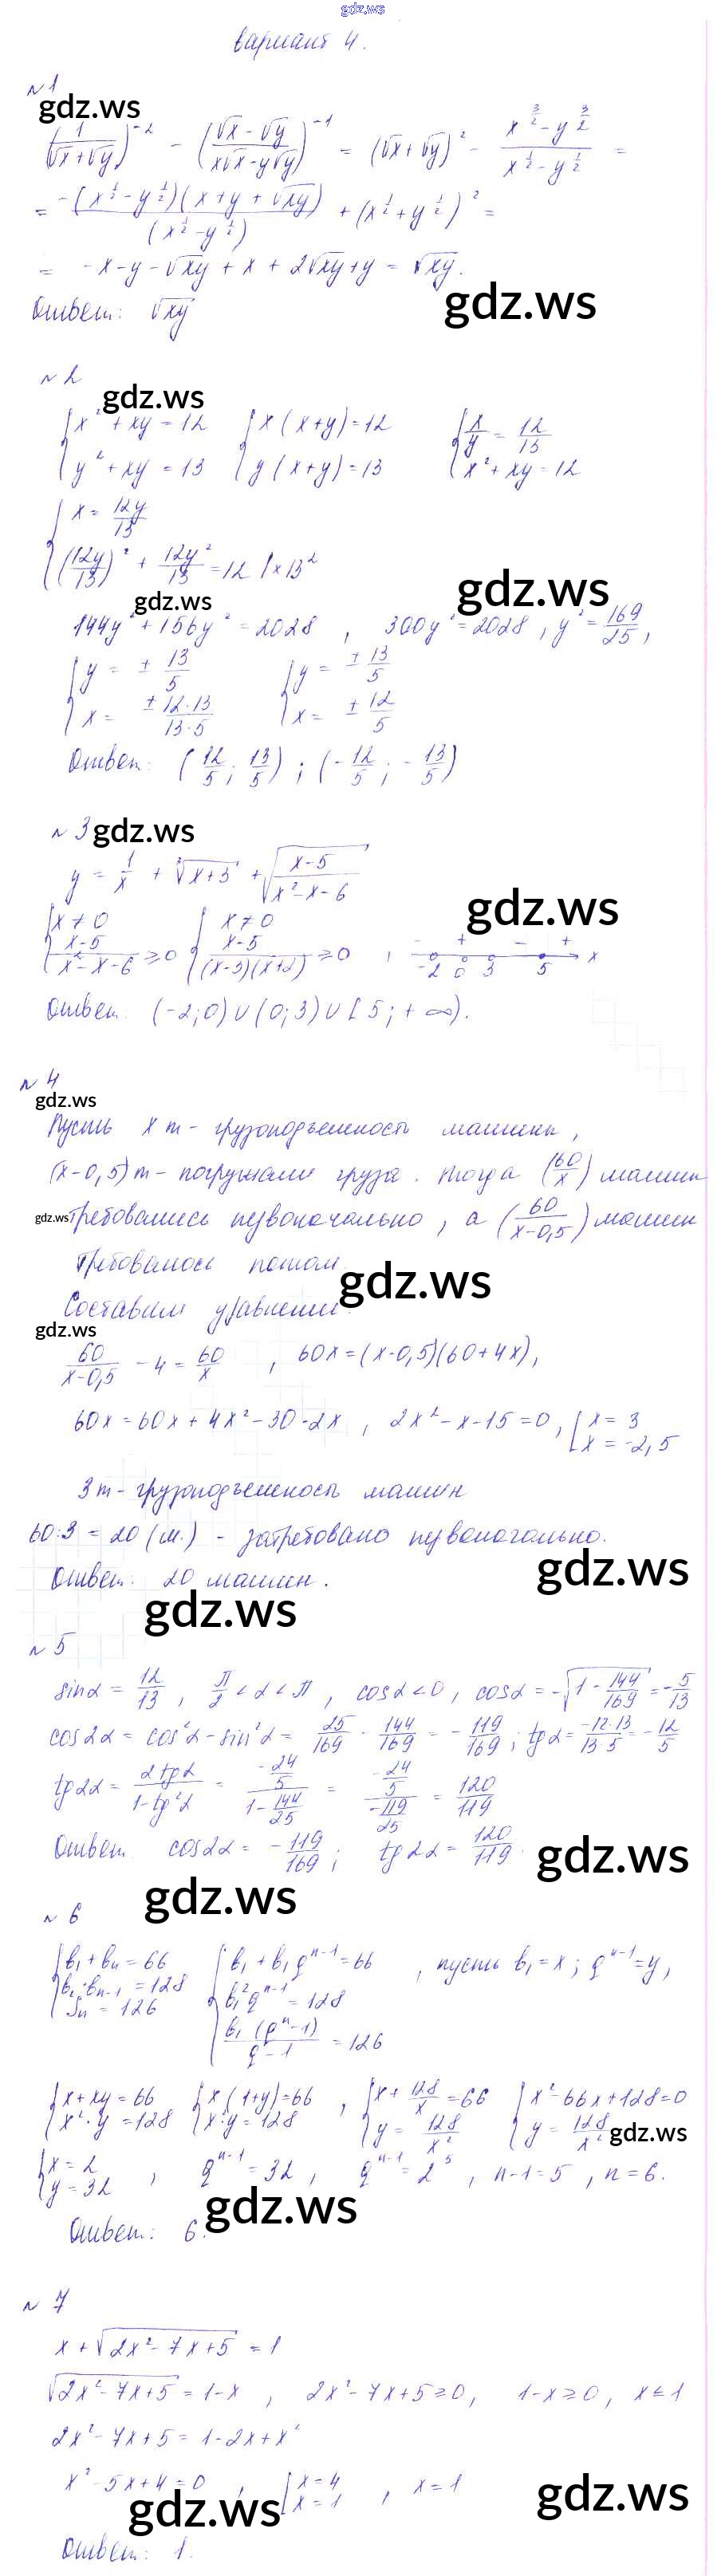 gdz.ws
вариант 4.
№1
gdz.ws
(1/(√x+√y))^-2 - ((√x-√y)/(x√x-y√y))^-1 = (√x+√y)^2 - (x^(3/2)-y^(3/2))/(x^(1/2)-y^(1/2)) =
= -(x^(1/2)-y^(1/2))(x+y+√xy)/(x^(1/2)-y^(1/2)) + (x^(1/2)+y^(1/2))^2 =
= -x-y-√xy + x + 2√xy + y = √xy.
gdz.ws
Ответ: √xy
№2
gdz.ws
{x^2+xy=12 {x(x+y)=12 {x/y = 12/13
y^2+xy=13 y(x+y)=13 x^2+xy=12
{x = 12y/13
(12y/13)^2 + 12y^2/13 = 12 |×13^2
gdz.ws
gdz.ws
144y^2+156y^2=2028, 300y^2=2028, y^2=169/25,
{y = ±13/5 {y = ±13/5
x = ±12·13/13·5 x = ±12/5
Ответ: (12/5; 13/5); (-12/5; -13/5)
№3 gdz.ws
y = 1/x + ∛x+3 + √((x-5)/(x^2-x-6))
gdz.ws
{x≠0 {x≠0
(x-5)/(x^2-x-6) ≥0 (x-5)/((x-3)(x+2)) ≥0, - + - + -2 0 3 5 x
Ответ: (-2;0)∪(0;3)∪[5;+∞).
№4
gdz.ws
Пусть x т - грузоподъемность машины,
(x-0,5)т - погружали груза. Тогда (60/x) машин
gdz.ws требовались первоначально, а (60/(x-0,5)) машин
требовалось потом.
gdz.ws
Составим уравнение:
gdz.ws
60/(x-0,5) - 4 = 60/x, 60x=(x-0,5)(60+4x),
60x=60x+4x^2-30-2x, 2x^2-x-15=0, [x=3
x=-2,5
3т - грузоподъемность машин
60:3=20(м.) - затребовано первоначально.
gdz.ws
Ответ: 20 машин.
gdz.ws
№5
sinα = 12/13, π/2<α<π, cosα<0, cosα = -√(1-144/169) = -5/13
cos2α = cos^2α-sin^2α = 25/169 - 144/169 = -119/169; tgα = -12·13/13·5 = -12/5
tg2α = 2tgα/(1-tg^2α) = (-24/5)/(1-144/25) = (-24/5)/(-119/25) = 120/119
Ответ: cos2α = -119/169; tg2α = 120/119.
gdz.ws
gdz.ws
№6
{b1+bn=66 {b1+b1q^(n-1)=66, пусть b1=x; q^(n-1)=y,
b2·bn-1=128 b1^2q^(n-1)=128
Sn=126 b1(q^n-1)/(q-1)=126
{x+xy=66 {x(1+y)=66, {x+128/x=66 {x^2-66x+128=0
x^2·y=128 x^2y=128 y=128/x^2 y=128/x^2 gdz.ws
{x=2, q^(n-1)=32, q^(n-1)=2^5, n-1=5, n=6.
y=32
gdz.ws
Ответ: 6.
№7
x+√(2x^2-7x+5) = 1
√(2x^2-7x+5) = 1-x, 2x^2-7x+5≥0, 1-x≥0, x≤1
2x^2-7x+5=1-2x+x^2
x^2-5x+4=0, [x=4, x=1
x=1
gdz.ws
gdz.ws
Ответ: 1.